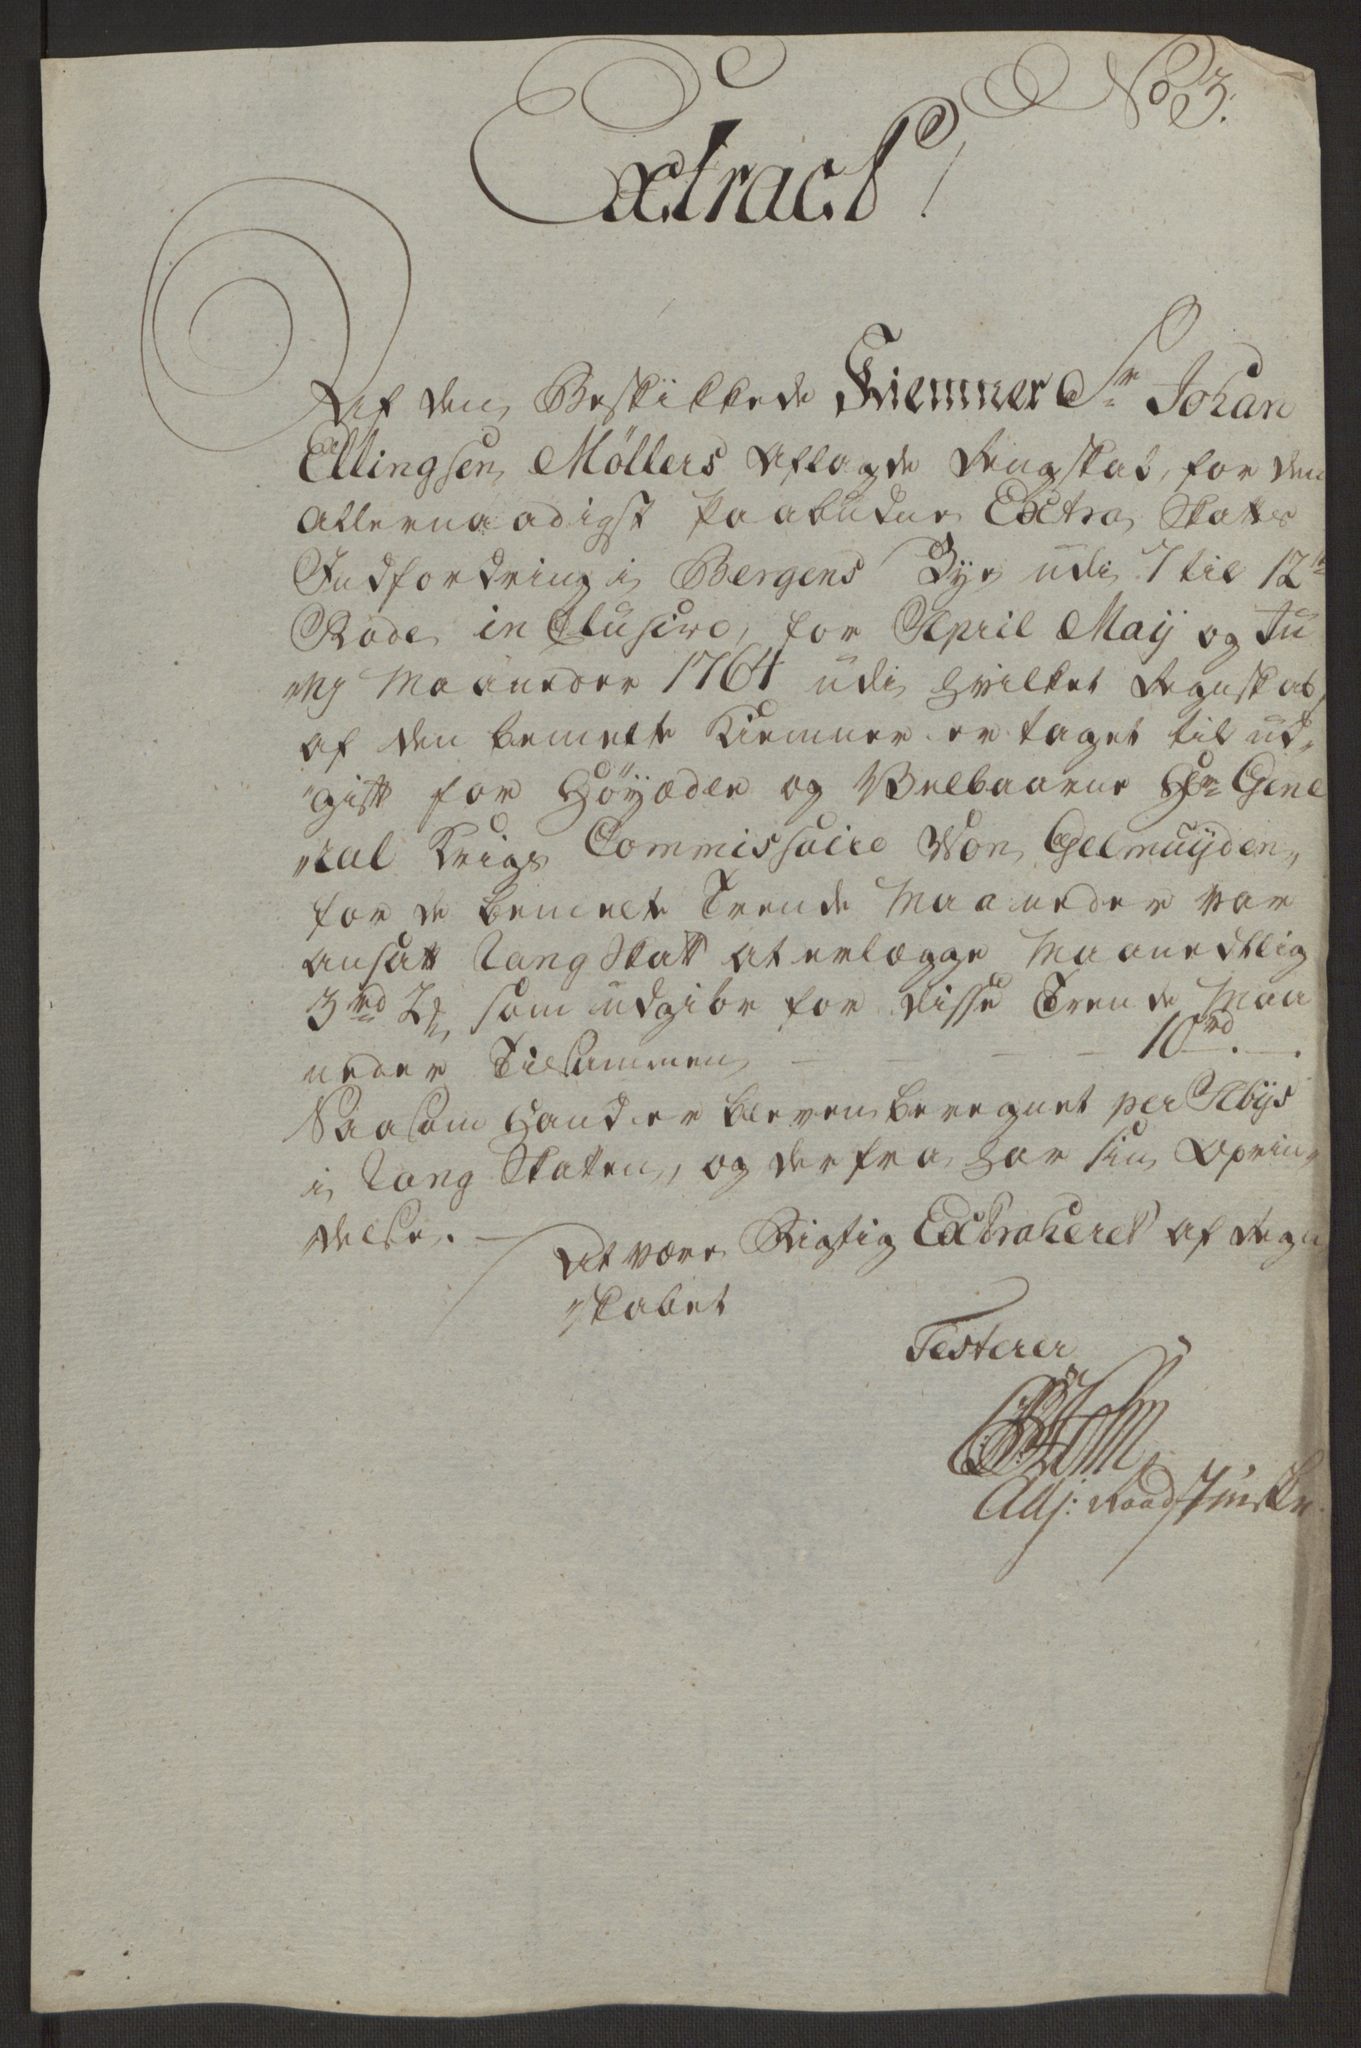 No 3.
Extract!
Af den Beskikkede Kiemner Sr Johan
Ellingsen Møllers Aflagde Regnskab, for den
Allernaadigst Paabudne Extra Skatts
Indfordring i Bergens Bye udi 7 til 12te
Rode inclusive, for April Maij og Ju-
nij Maaneder 1764 udi hvilket Regnskab,
af den bemelte Kiemner er taget til ud-
gift for Høyædle og Velbaarne Hr Gene
ral Krigs Commissaire Von Gelmuyden,
for de bemelte Trende Maaneder var
ansatt Rang Skatt at erlægge Maanedtlig
3 rd 2 som udgiør for disse Trende Maa
neder Tilsammen — — — 10 rd. —.
Saasom Hand er bleven beregnet per Avis
i Rang Skatten, og derfra har sin Oprin-
delse. —
At være Rigtig Extraheret af Regn
skabet
Testerer
Adj: Raadstueskr.